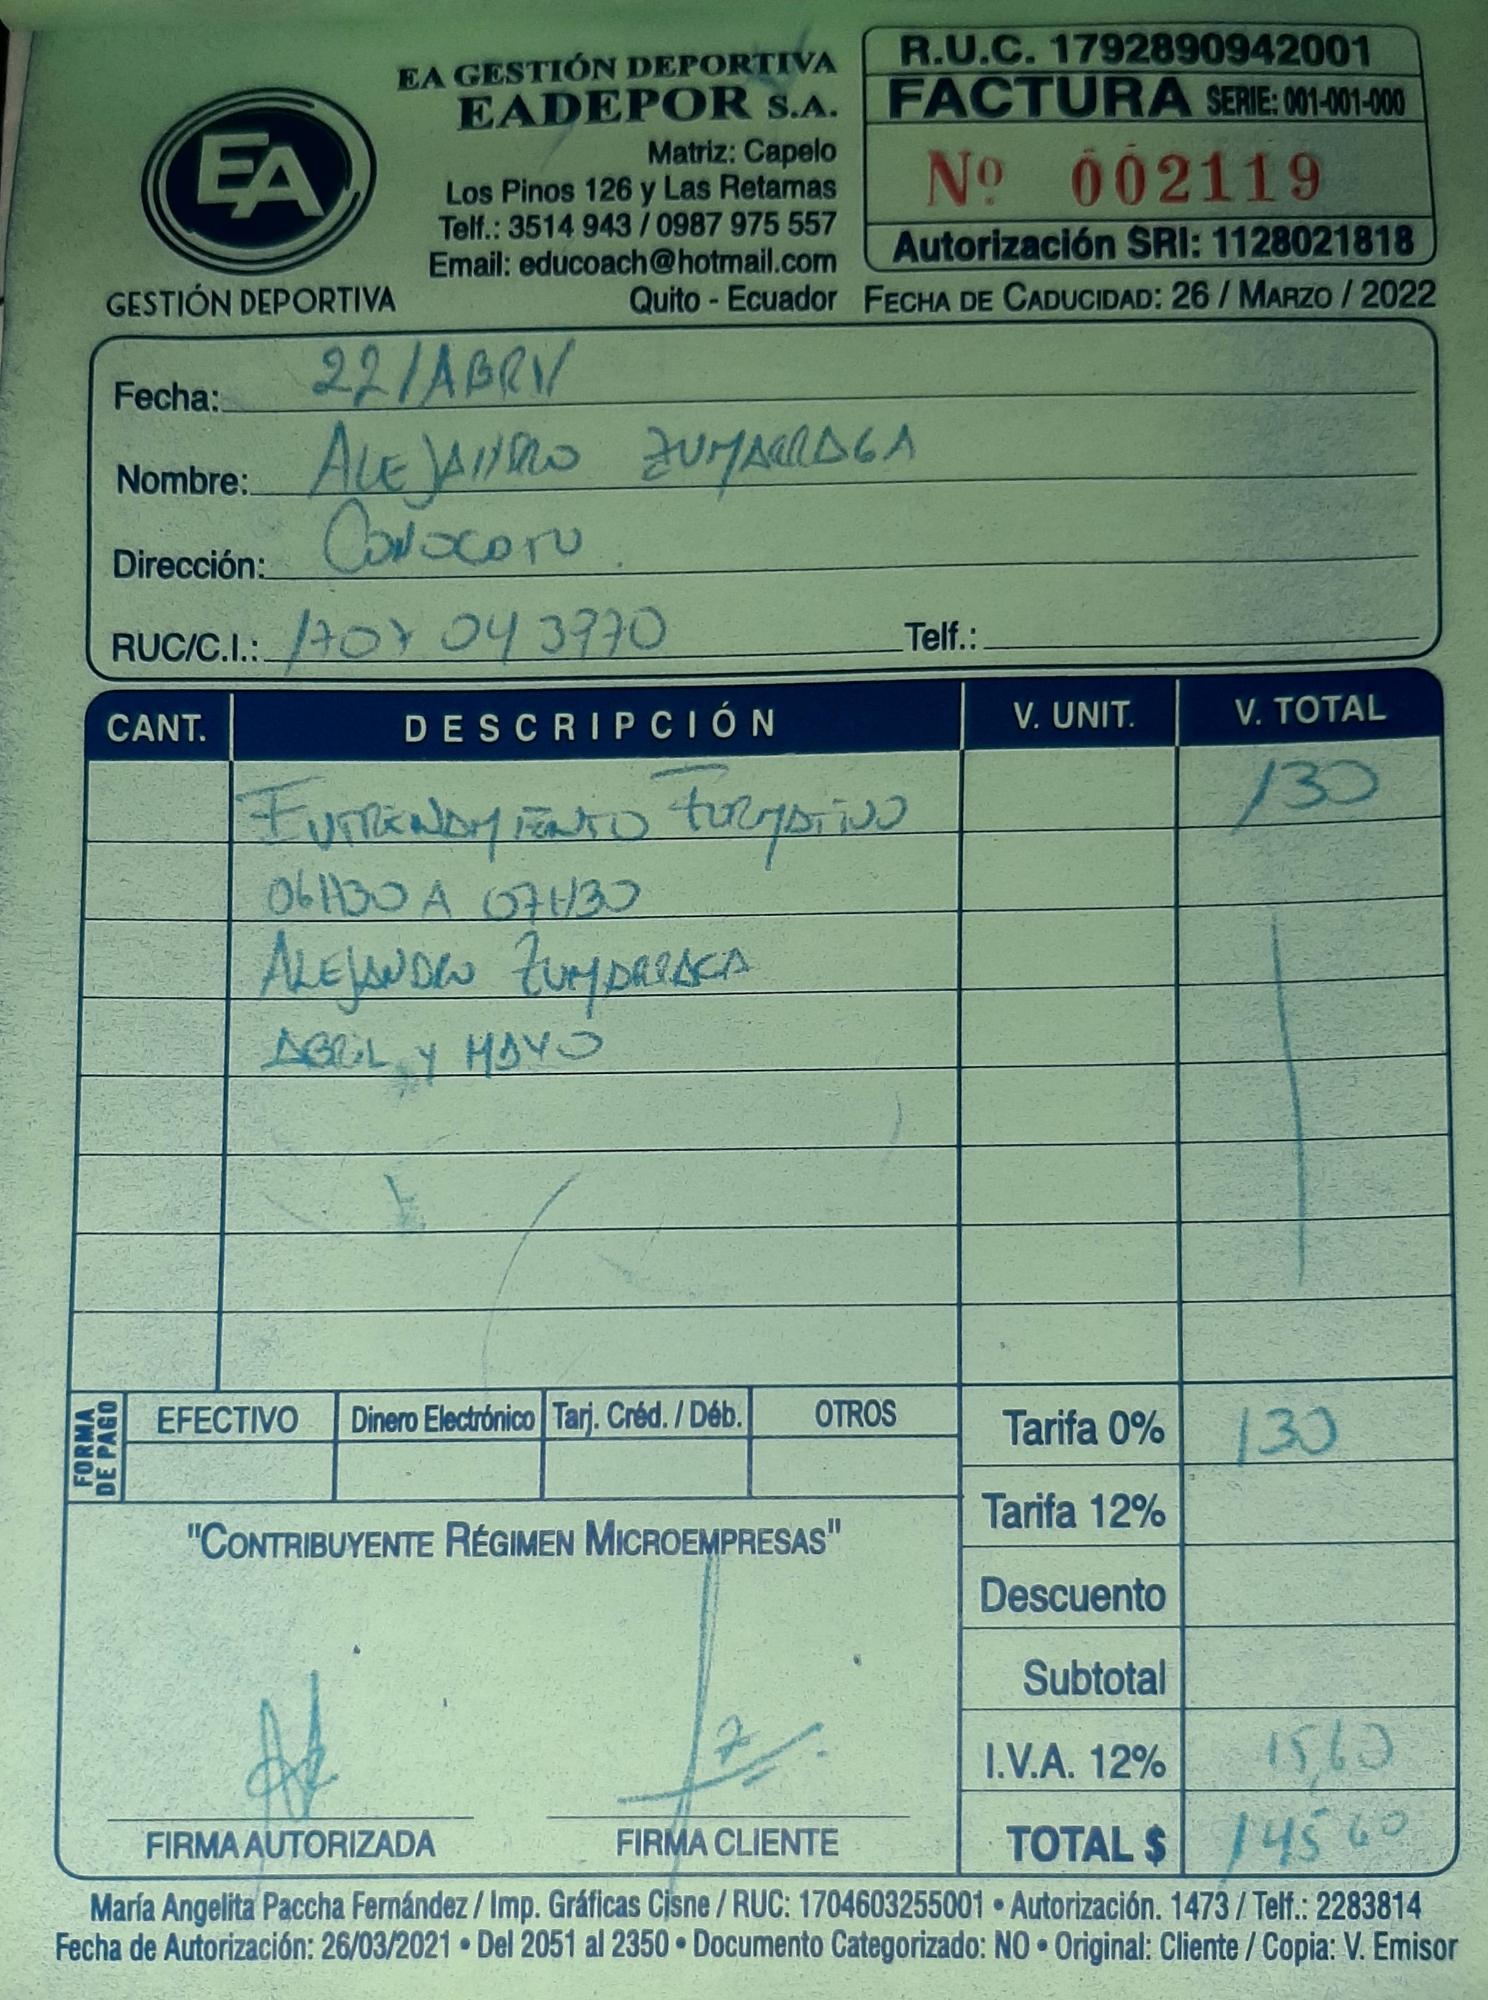 EA GESTIÓN DEPORTIVA
EADEPOR S.A.
Matriz: Capelo
Los Pinos 126 y Las Retamas
Telf.: 3514 943 / 0987 975 557
Email: educoach@hotmail.com
Quito - Ecuador
EA
GESTIÓN DEPORTIVA
R.U.C. 1792890942001
FACTURA SERIE: 001-001-000
Nº 002119
Autorización SRI: 1128021818
FECHA DE CADUCIDAD: 26 / MARZO / 2022
Fecha: 22/ABRIL
Nombre: ALEJANDRO ZUMARRAGA
Dirección: CONOCOTO
RUC/C.I.: 1707043970 Telf.:
CANT. DESCRIPCIÓN V. UNIT. V. TOTAL
ENTRENAMIENTO FORMATIVO 130
06H30 A 07H30
ALEJANDRO ZUMARRAGA
ABRIL Y MAYO
FORMA DE PAGO EFECTIVO Dinero Electrónico Tarj. Créd. / Déb. OTROS
Tarifa 0% 130
Tarifa 12%
Descuento
Subtotal
I.V.A. 12% 15,60
TOTAL $ 145 60
"CONTRIBUYENTE RÉGIMEN MICROEMPRESAS"
FIRMA AUTORIZADA FIRMA CLIENTE
María Angelita Paccha Fernández / Imp. Gráficas Cisne / RUC: 1704603255001 • Autorización. 1473 / Telf.: 2283814
Fecha de Autorización: 26/03/2021 • Del 2051 al 2350 • Documento Categorizado: NO • Original: Cliente / Copia: V. Emisor